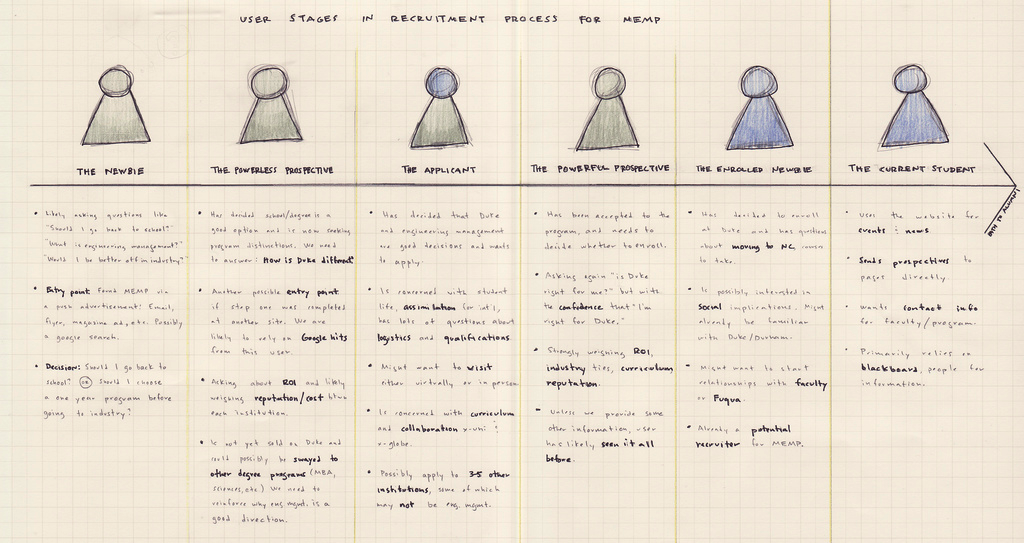 USER STAGES IN RECRUITMENT PROCESS FOR MEMP
THE NEWBIE
• Likely asking questions like
"Should I go back to school?"
"What is engineering management?"
"Would I be better off in industry?"
• Entry point found MEMP via
a push advertisement: Email,
flyer, magazine ad, etc. Possibly
a google search.
• Decision: Should I go back to
school? OR Should I choose
a one year program before
going to industry?
THE POWERLESS PROSPECTIVE
• Has decided school/degree is a
good option and is now seeking
program distinctions. We need
to answer: How is Duke different?
• Another possible entry point
if step one was completed
at another site. We are
likely to rely on Google hits
from this user.
• Asking about ROI and likely
weighing reputation/cost btwn
each institution.
• Is not yet sold on Duke and
could possibly be swayed to
other degree programs (MBA,
sciences, etc.) We need to
reinforce why eng. mgmt. is a
good direction.
THE APPLICANT
• Has decided that Duke
and engineering management
are good decisions and wants
to apply.
• Is concerned with student
life, assimilation for int'l,
has lots of questions about
logistics and qualifications.
• Might want to visit
either virtually or in person.
• Is concerned with curriculum
and collaboration x-uni &
x-globe.
• Possibly apply to 3-5 other
institutions, some of which
may not be eng. mgmt.
THE POWERFUL PROSPECTIVE
• Has been accepted to the
program, and needs to
decide whether to enroll.
• Asking again "is Duke
right for me?" but with
the confidence that "I'm
right for Duke."
• Strongly weighing ROI,
industry ties, curriculum
reputation.
• Unless we provide some
other information, user
has likely seen it all
before.
THE ENROLLED NEWBIE
• Has decided to enroll
at Duke and has questions
about moving to NC, courses
to take.
• Is possibly interested in
social implications. Might
already be familiar
with Duke/Durham.
• Might want to start
relationships with faculty
or Fuqua.
• Already a potential
recruiter for MEMP.
THE CURRENT STUDENT
• Uses the website for
events & news
• Sends prospectives to
pages directly.
• Wants contact info
for faculty/program.
• Primarily relies on
blackboard, people for
information.
TO ALUMNI